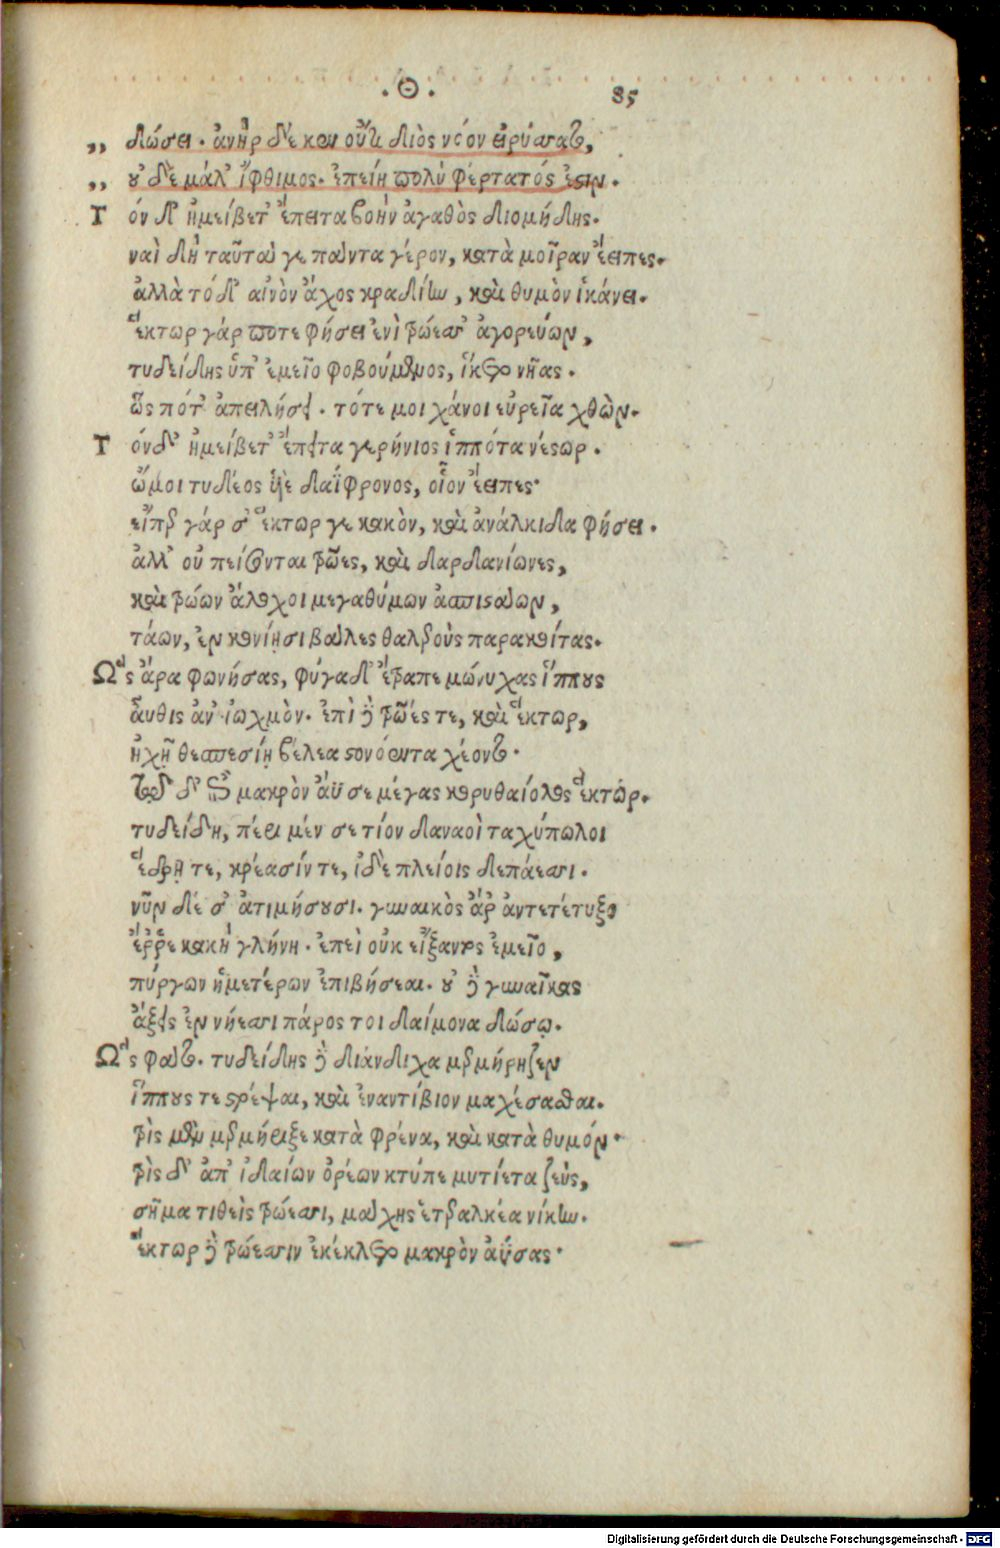 ·Θ· 85
„ δώσει. ἀνὴρ δέ κεν οὔτι διὸς νόον εἰρύσαιτο,
„ οὐδὲ μάλ' ἴφθιμος. ἐπείη πολὺ φέρτατός ἐστιν.
Τόν δ' ἠμείβετ' ἔπειτα βοὴν ἀγαθὸς διομήδης.
ναὶ δὴ ταῦτά γε πάντα γέρον, κατὰ μοῖραν ἔειπες.
ἀλλὰ τόδ' αἰνὸν ἄχος κραδίην, καὶ θυμὸν ἱκάνει.
ἕκτωρ γάρ ποτε φήσει ἐνὶ τρώεσσ' ἀγορεύων,
τυδείδης ὑπ' ἐμεῖο φοβούμενος, ἵκετο νῆας.
ὥς πότ' ἀπειλήσει. τότε μοι χάνοι εὐρεῖα χθών.
Τόνδ' ἠμείβετ' ἔπειτα γερήνιος ἱππότα νέστωρ.
ὤμοι τυδέος ὑιὲ δαΐφρονος, οἷον ἔειπες·
εἴπερ γάρ σ' ἕκτωρ γε κακὸν, καὶ ἀνάλκιδα φήσει.
ἀλλ' οὐ πείσονται τρῶες, καὶ δαρδανίωνες,
καὶ τρώων ἄλοχοι μεγαθύμων ἀσπιστάων,
τάων, ἐν κονίῃσι βάλες θαλεροὺς παρακοίτας.
Ὣς ἄρα φωνήσας, φύγαδ' ἔτραπε μώνυχας ἵππους
αὖθις ἀν' ἰωχμὸν. ἐπὶ δὲ τρῶές τε, καὶ ἕκτωρ,
ἠχῇ θεσπεσίῃ βέλεα στονόεντα χέοντο.
τῷ δ' ἐπὶ μακρὸν ἄϋσε μέγας κορυθαίολος ἕκτωρ.
τυδείδη, πέρι μέν σε τίον δαναοὶ ταχύπωλοι
ἕδρῃ τε, κρέασίν τε, ἰδὲ πλείοις δεπάεσσι.
νῦν δέ σ' ἀτιμήσουσι. γυναικὸς ἄρ' ἀντετέτυξο
ἔρρε κακὴ γλήνη. ἐπεὶ οὐκ εἴξαντος ἐμεῖο,
πύργων ἡμετέρων ἐπιβήσεαι. οὐ δὲ γυναῖκας
ἄξεις ἐν νήεσσι πάρος τοι δαίμονα δώσω.
Ὣς φάτο. τυδείδης δὲ διάνδιχα μερμήριζεν
ἵππους τε στρέψαι, καὶ ἐναντίβιον μαχέσασθαι.
τρὶς μὲν μερμήριξε κατὰ φρένα, καὶ κατὰ θυμόν.
τρὶς δ' ἀπ' ἰδαίων ὀρέων κτύπε μυτίετα ζεὺς,
σῆμα τιθεὶς τρώεσσι, μάχης ἑτεραλκέα νίκην.
ἕκτωρ δὲ τρώεσσιν ἐκέκλετο μακρὸν ἀΰσας·
Digitalisierung gefördert durch die Deutsche Forschungsgemeinschaft - DFG